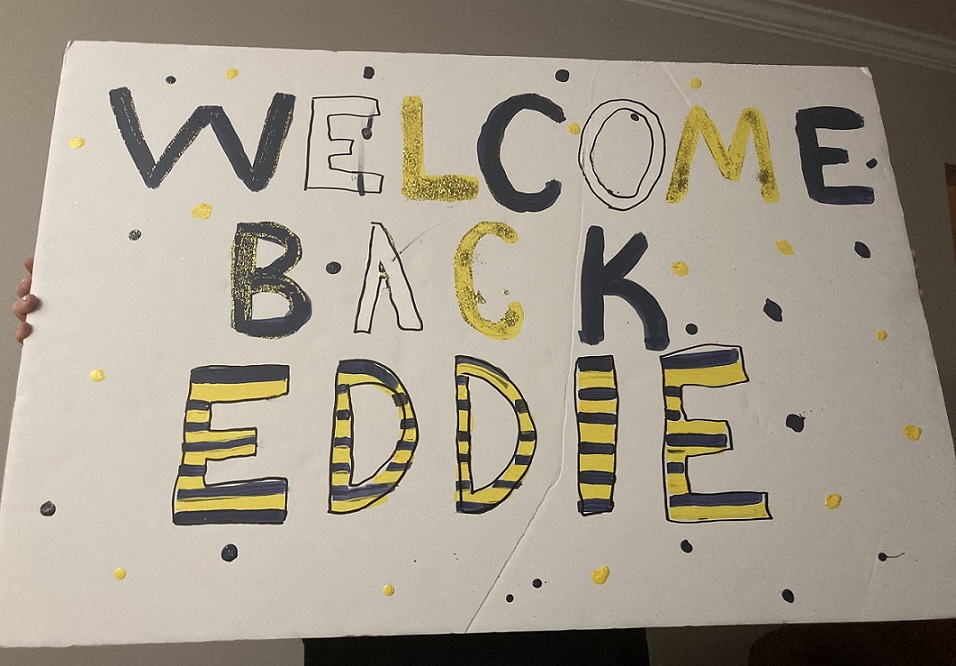 WELCOME
BACK
EDDIE